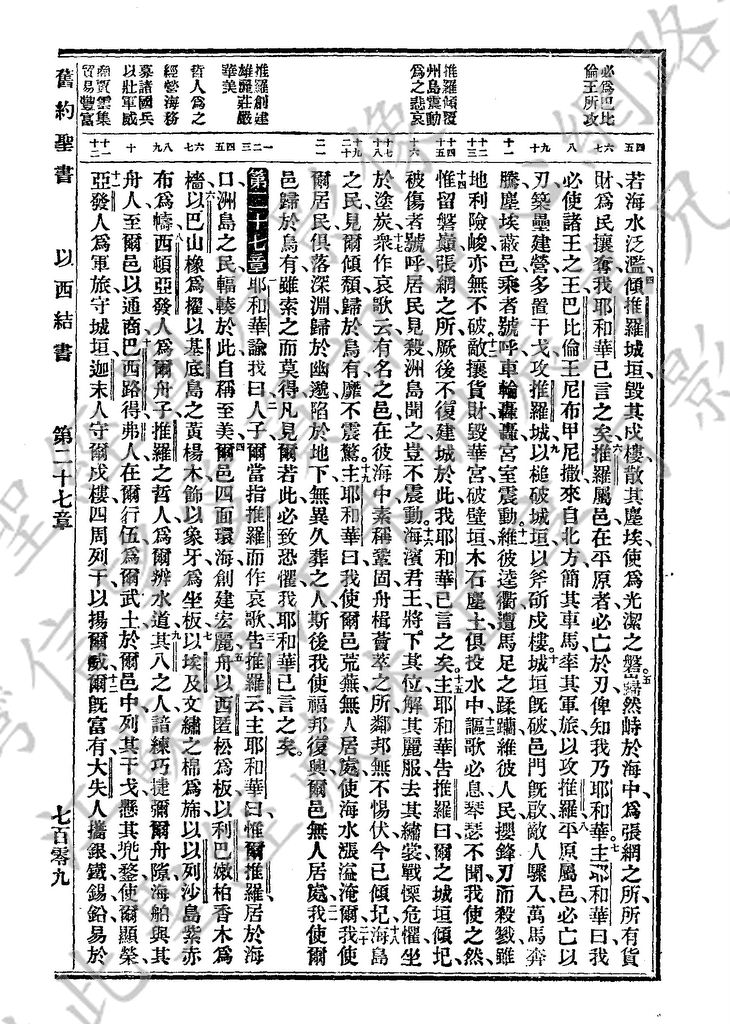 必爲巴比
倫王所攻
推羅傾覆
州島震動
爲之悲哀
推羅創建
雄麗莊嚴
華美
哲人爲之
經營海務
募諸國兵
以壯軍威
商賈雲集
貿易豐富
四
五
六
七
八
九
十
十一
十二
十三
十四
十五
十六
十七
十八
十九
二十
二一
一
二
三
四
五
六
七
八
九
十
十一
十二
若海水泛濫傾推羅城垣毀其戍樓散其塵埃使爲光潔之磐巋然峙於海中爲張網之所所有貨
財爲民攘奪我耶和華已言之矣推羅屬邑在平原者必亡於刃俾知我乃耶和華主耶和華曰我
必使諸王之王巴比倫王尼布甲尼撒來自北方簡其車馬率其軍旅以攻推羅平原屬邑必亡以
刃築壘建營多置干戈攻推羅城以槌破城垣以斧斫戍樓城垣旣破邑門旣啟敵人驟入萬馬奔
騰塵埃蔽邑乘者號呼車輪轟轟宮室震動維彼逵衢遭馬足之蹂躪維彼人民攖鋒刃而殺戮雖
地利險峻亦無不破敵攘貨財毀華宮破壁垣木石塵土俱投水中謳歌必息琴瑟不聞我使之然
惟留磐巔張網之所厥後不復建城於此我耶和華已言之矣主耶和華告推羅曰爾之城垣傾圮
被傷者號呼居民見殺洲島聞之豈不震動海濱君王將下其位解其麗服去其繡裳戰慄危懼坐
於塗炭衆作哀歌云有名之邑在彼海中素稱鞏固舟楫薈萃之所鄰邦無不惕伏今已傾圮海島
之民見爾傾頹歸於烏有靡不震驚主耶和華曰我使爾邑荒蕪無人居處使海水漲溢淹爾我使
爾居民俱落深淵歸於幽邈陷於地下無異久葬之人斯後我使福邦復興爾邑無人居處我使爾
邑歸於烏有雖索之而莫得凡見爾若此必致恐懼我耶和華已言之矣
第二十七章耶和華諭我曰人子爾當指推羅而作哀歌告推羅云主耶和華曰惟爾推羅居於海
口洲島之民輻輳於此自稱至美爾邑四面環海創建宏麗舟以西匿松爲板以利巴嫩柏香木爲
檣以巴山橡爲櫂以基底島之黃楊木飾以象牙爲坐板以埃及文繡之棉爲旆以以列沙島紫赤
布爲幬西頓亞發人爲爾舟子推羅之哲人爲爾辨水道其八之人諳練巧捷彌爾舟隙海船與其
舟人至爾邑以通商巴西路得弗人在爾行伍爲爾武士於爾邑中列其干戈懸其兠鍪使爾顯榮
亞發人爲軍旅守城垣迦末人守爾戍樓四周列干以揚爾威爾旣富有大失人攜銀鐵錫鉛易於
舊約聖書 以西結書 第二十七章 七百零九